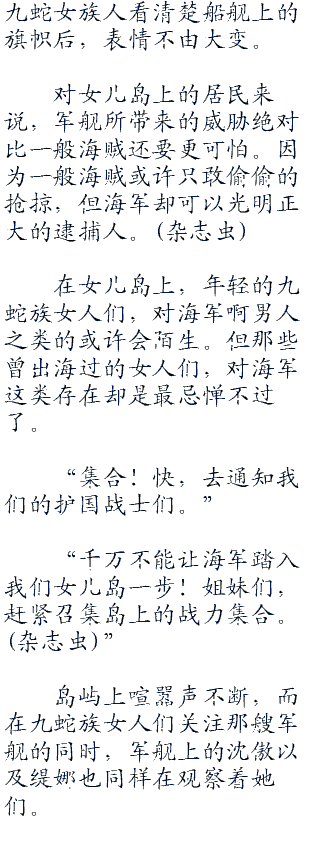 九蛇女族人看清楚船舰上的
旗帜后，表情不由大变。
对女儿岛上的居民来
说，军舰所带来的威胁绝对
比一般海贼还要更可怕。因
为一般海贼或许只敢偷偷的
抢掠，但海军却可以光明正
大的逮捕人。(杂志虫)
在女儿岛上，年轻的九
蛇族女人们，对海军啊男人
之类的或许会陌生。但那些
曾出海过的女人们，对海军
这类存在却是最忌惮不过
了。
“集合！快，去通知我
们的护国战士们。”
“千万不能让海军踏入
我们女儿岛一步！姐妹们，
赶紧召集岛上的战力集合。
(杂志虫)”
岛屿上喧嚣声不断，而
在九蛇族女人们关注那艘军
舰的同时，军舰上的沈傲以
及缇娜也同样在观察着她
们。